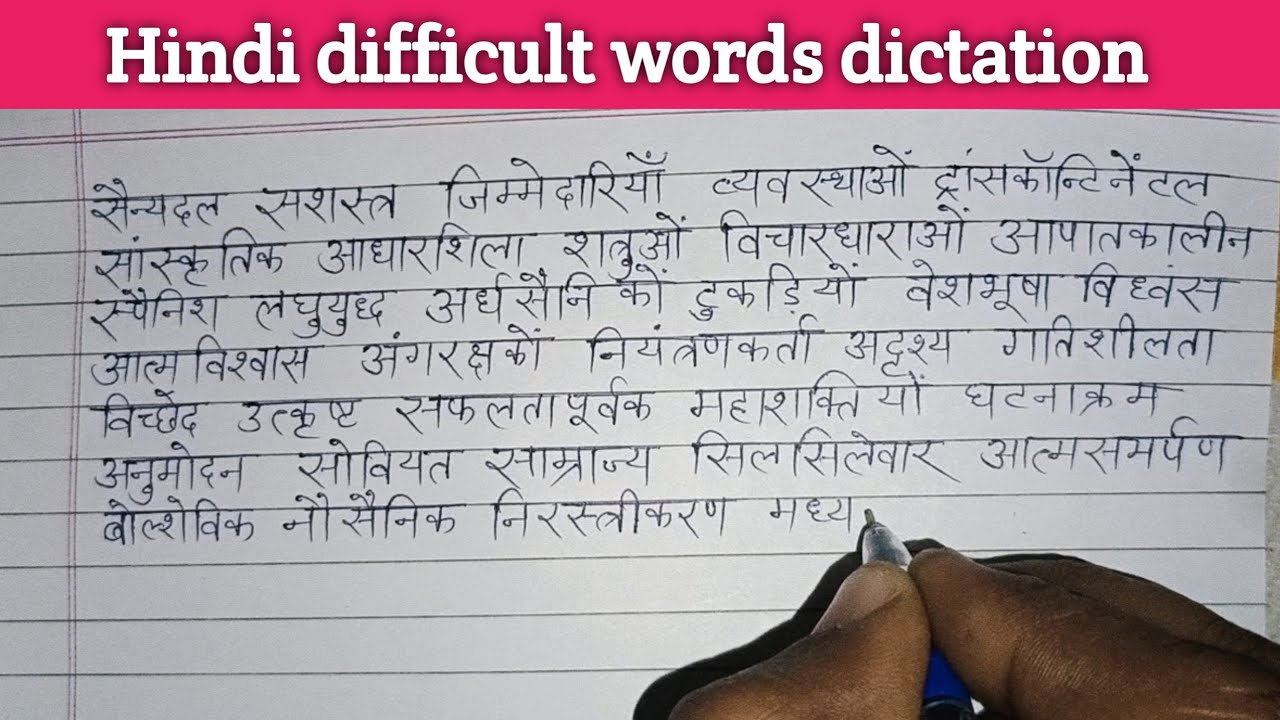 Hindi difficult words dictation
सैन्यदल सशस्त्र जिम्मेदारियाँ व्यवस्थाओं ट्रांसकॉन्टिनेंटल
सांस्कृतिक आधारशिला शत्रुओं विचारधाराओं आपातकालीन
स्पैनिश लघुयुद्ध अर्धसैनिकों टुकड़ियों वेशभूषा विध्वंस
आत्मविश्वास अंगरक्षकों नियंत्रणकर्ता अदृश्य गतिशीलता
विच्छेद उत्कृष्ट सफलतापूर्वक महाशक्तियों घटनाक्रम
अनुमोदन सोवियत साम्राज्य सिलसिलेवार आत्मसमर्पण
बोल्शेविक नौसैनिक निरस्त्रीकरण मध्य